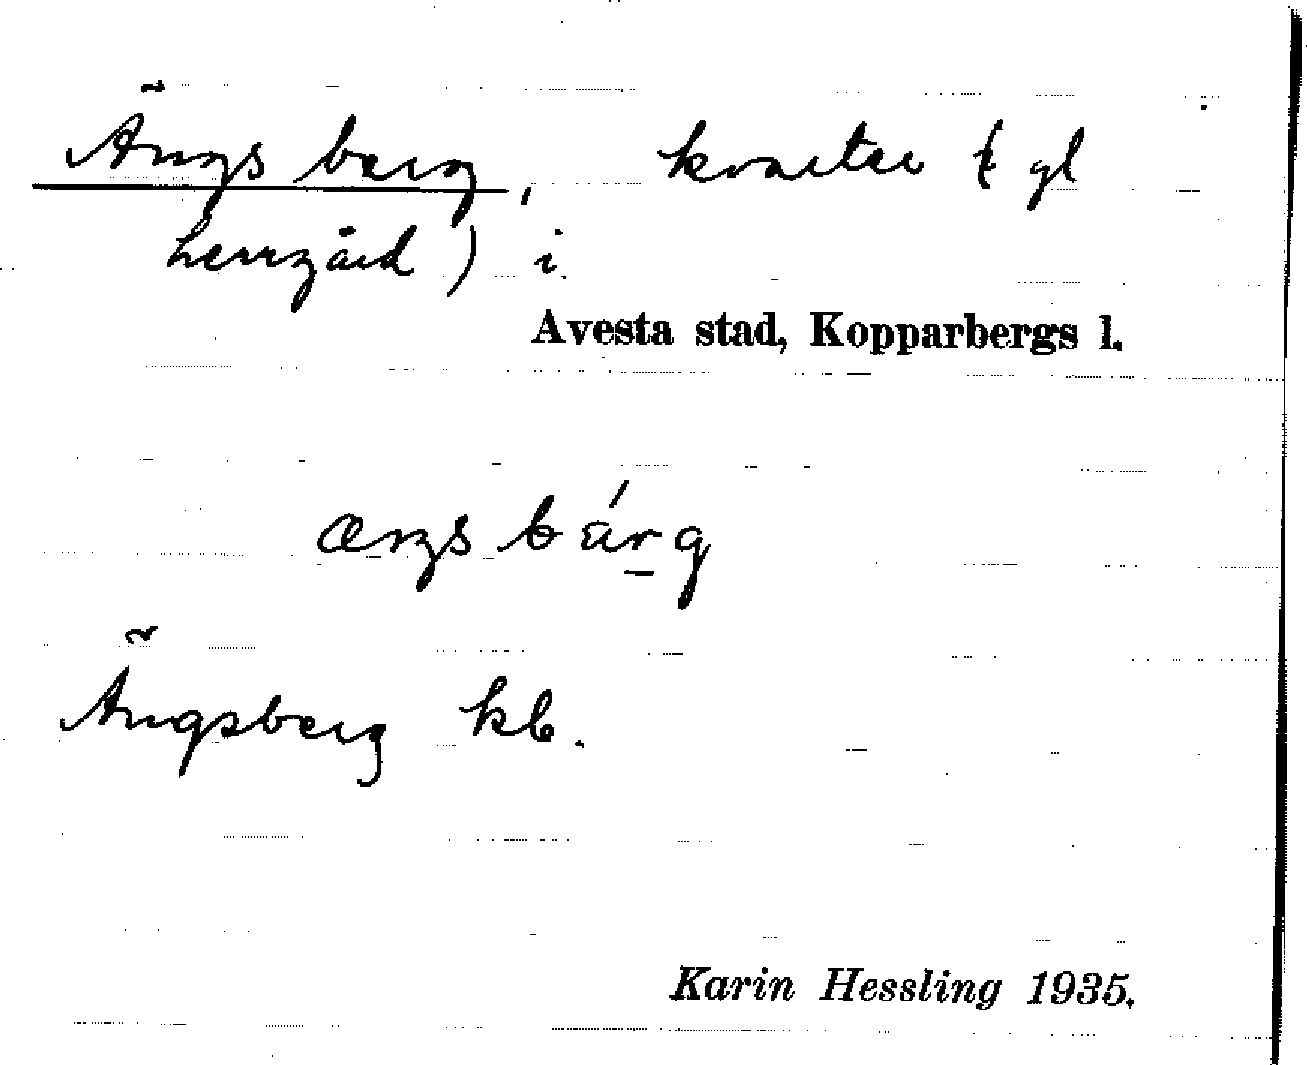 Ängsberg, kvarter (gl
herrgård) i
Avesta stad, Kopparbergs l.
æŋsbärg
Ängsberg kb.
Karin Hessling 1935.